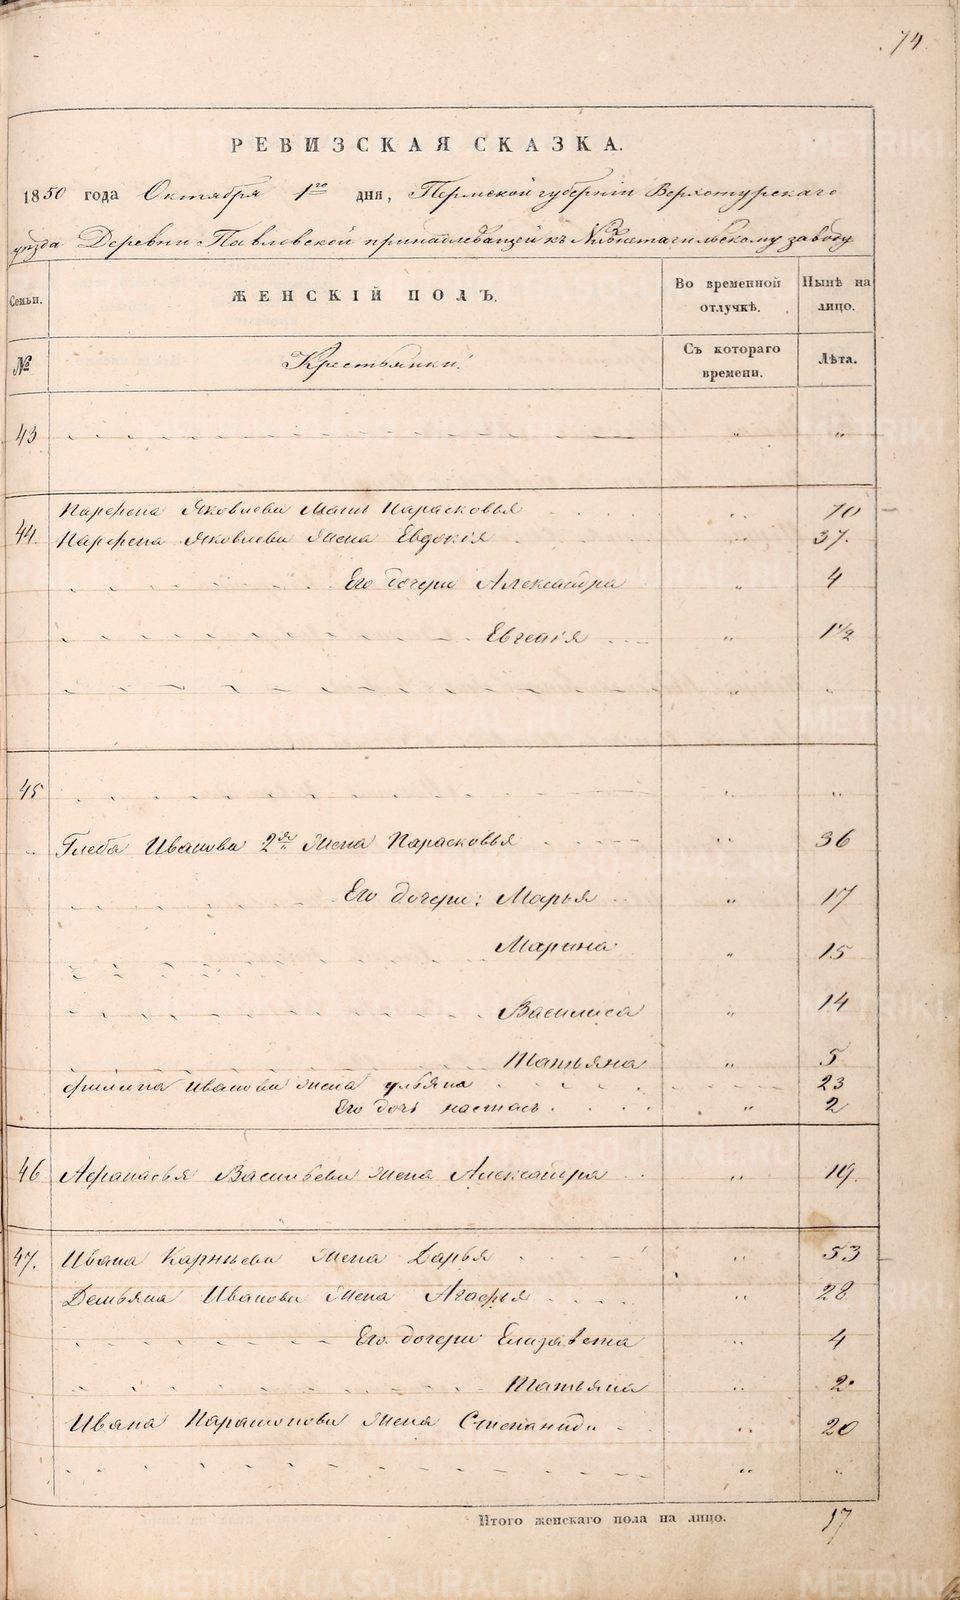 74.
РЕВИЗСКАЯ СКАЗКА.
1850 года Октября 1го дня, Пермской губернiи Верхотурскаго
уѣзда Деревни Павловской принадлежащей къ Нижнетагильскому заводу
Семьи. ЖЕНСКІЙ ПОЛЪ. Во временной отлучкѣ. Нынѣ на лицо.
№ Крестьянки. Съ котораго времени. Лѣта.
43 " "
Парфена Яковлева Мать Парасковья " 70
44. Парфена Яковлева жена Евдокія " 37.
Его дочери Александра " 4
Евгенія " 1 1/2
" "
45 " "
Глеба Иванова 2я жена Парасковья " 36
Его дочери: Марья " 17
Марина " 15
Василиса " 14
Татьяна " 5
Филипа Иванова жена Ульяна 23
Его дочь Настась. " 2
46 Афанасья Васильева жена Александра " 19.
47. Ивана Карнѣева жена Дарья " 53
Демьяна Иванова жена Агафья " 28
Его дочери Елизавета " 4
Татьяна " 2
Ивана Парамонова жена Степанида " 20
" "
Итого женскаго пола на лицо. 17
METRIKI.GASO-URAL.RU